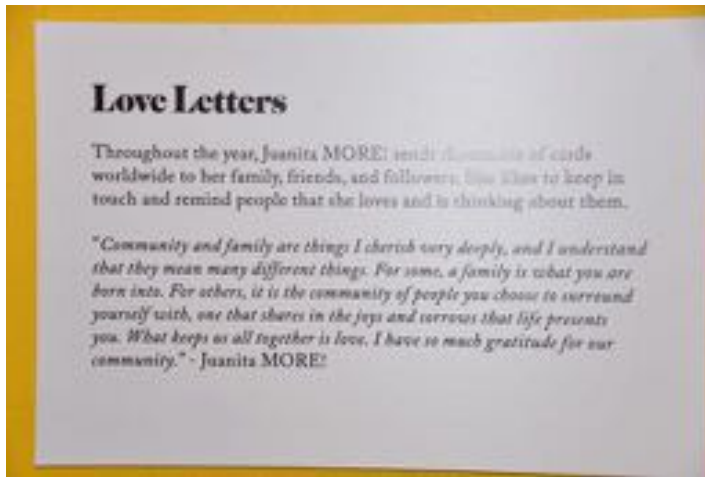 Love Letters
Throughout the year, Juanita MORE! sends of cards
worldwide to her family, friends, and followers. She likes to keep in
touch and remind people that she loves and is thinking about them.
"Community and family are things I cherish very deeply, and I understand
that they mean many different things. For some, a family is what you are
born into. For others, it is the community of people you choose to surround
yourself with, one that shares in the joys and sorrows that life presents
you. What keeps us all together is love. I have so much gratitude for our
community." - Juanita MORE!